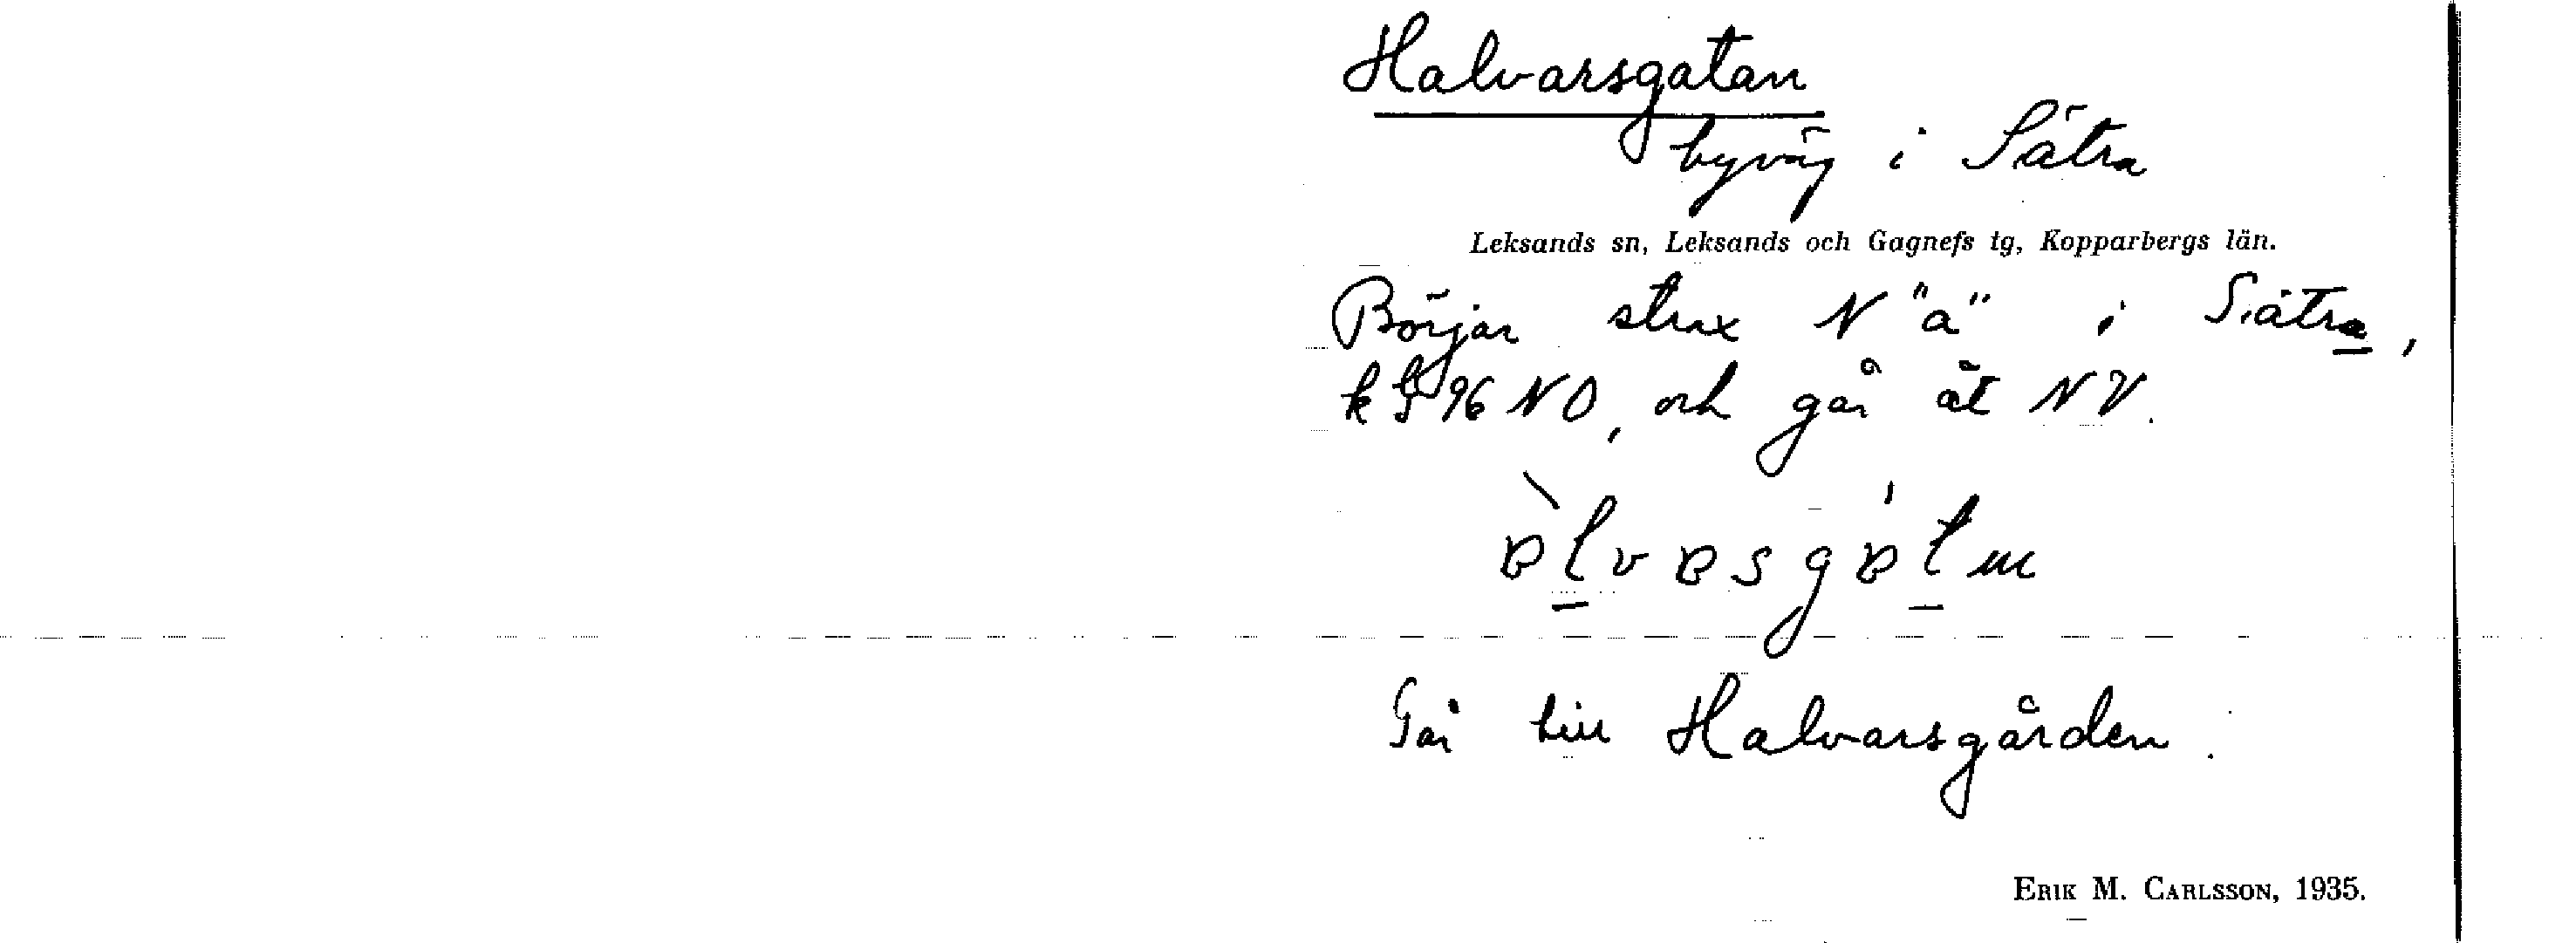 Halvarsgatan
byväg i Sätra
Leksands sn, Leksands och Gagnefs tg, Kopparbergs län.
Börjar strax N "ä" i Sätra,
96 NO, och går åt NV.
Går till Halvarsgården.
ERIK M. CARLSSON, 1935.